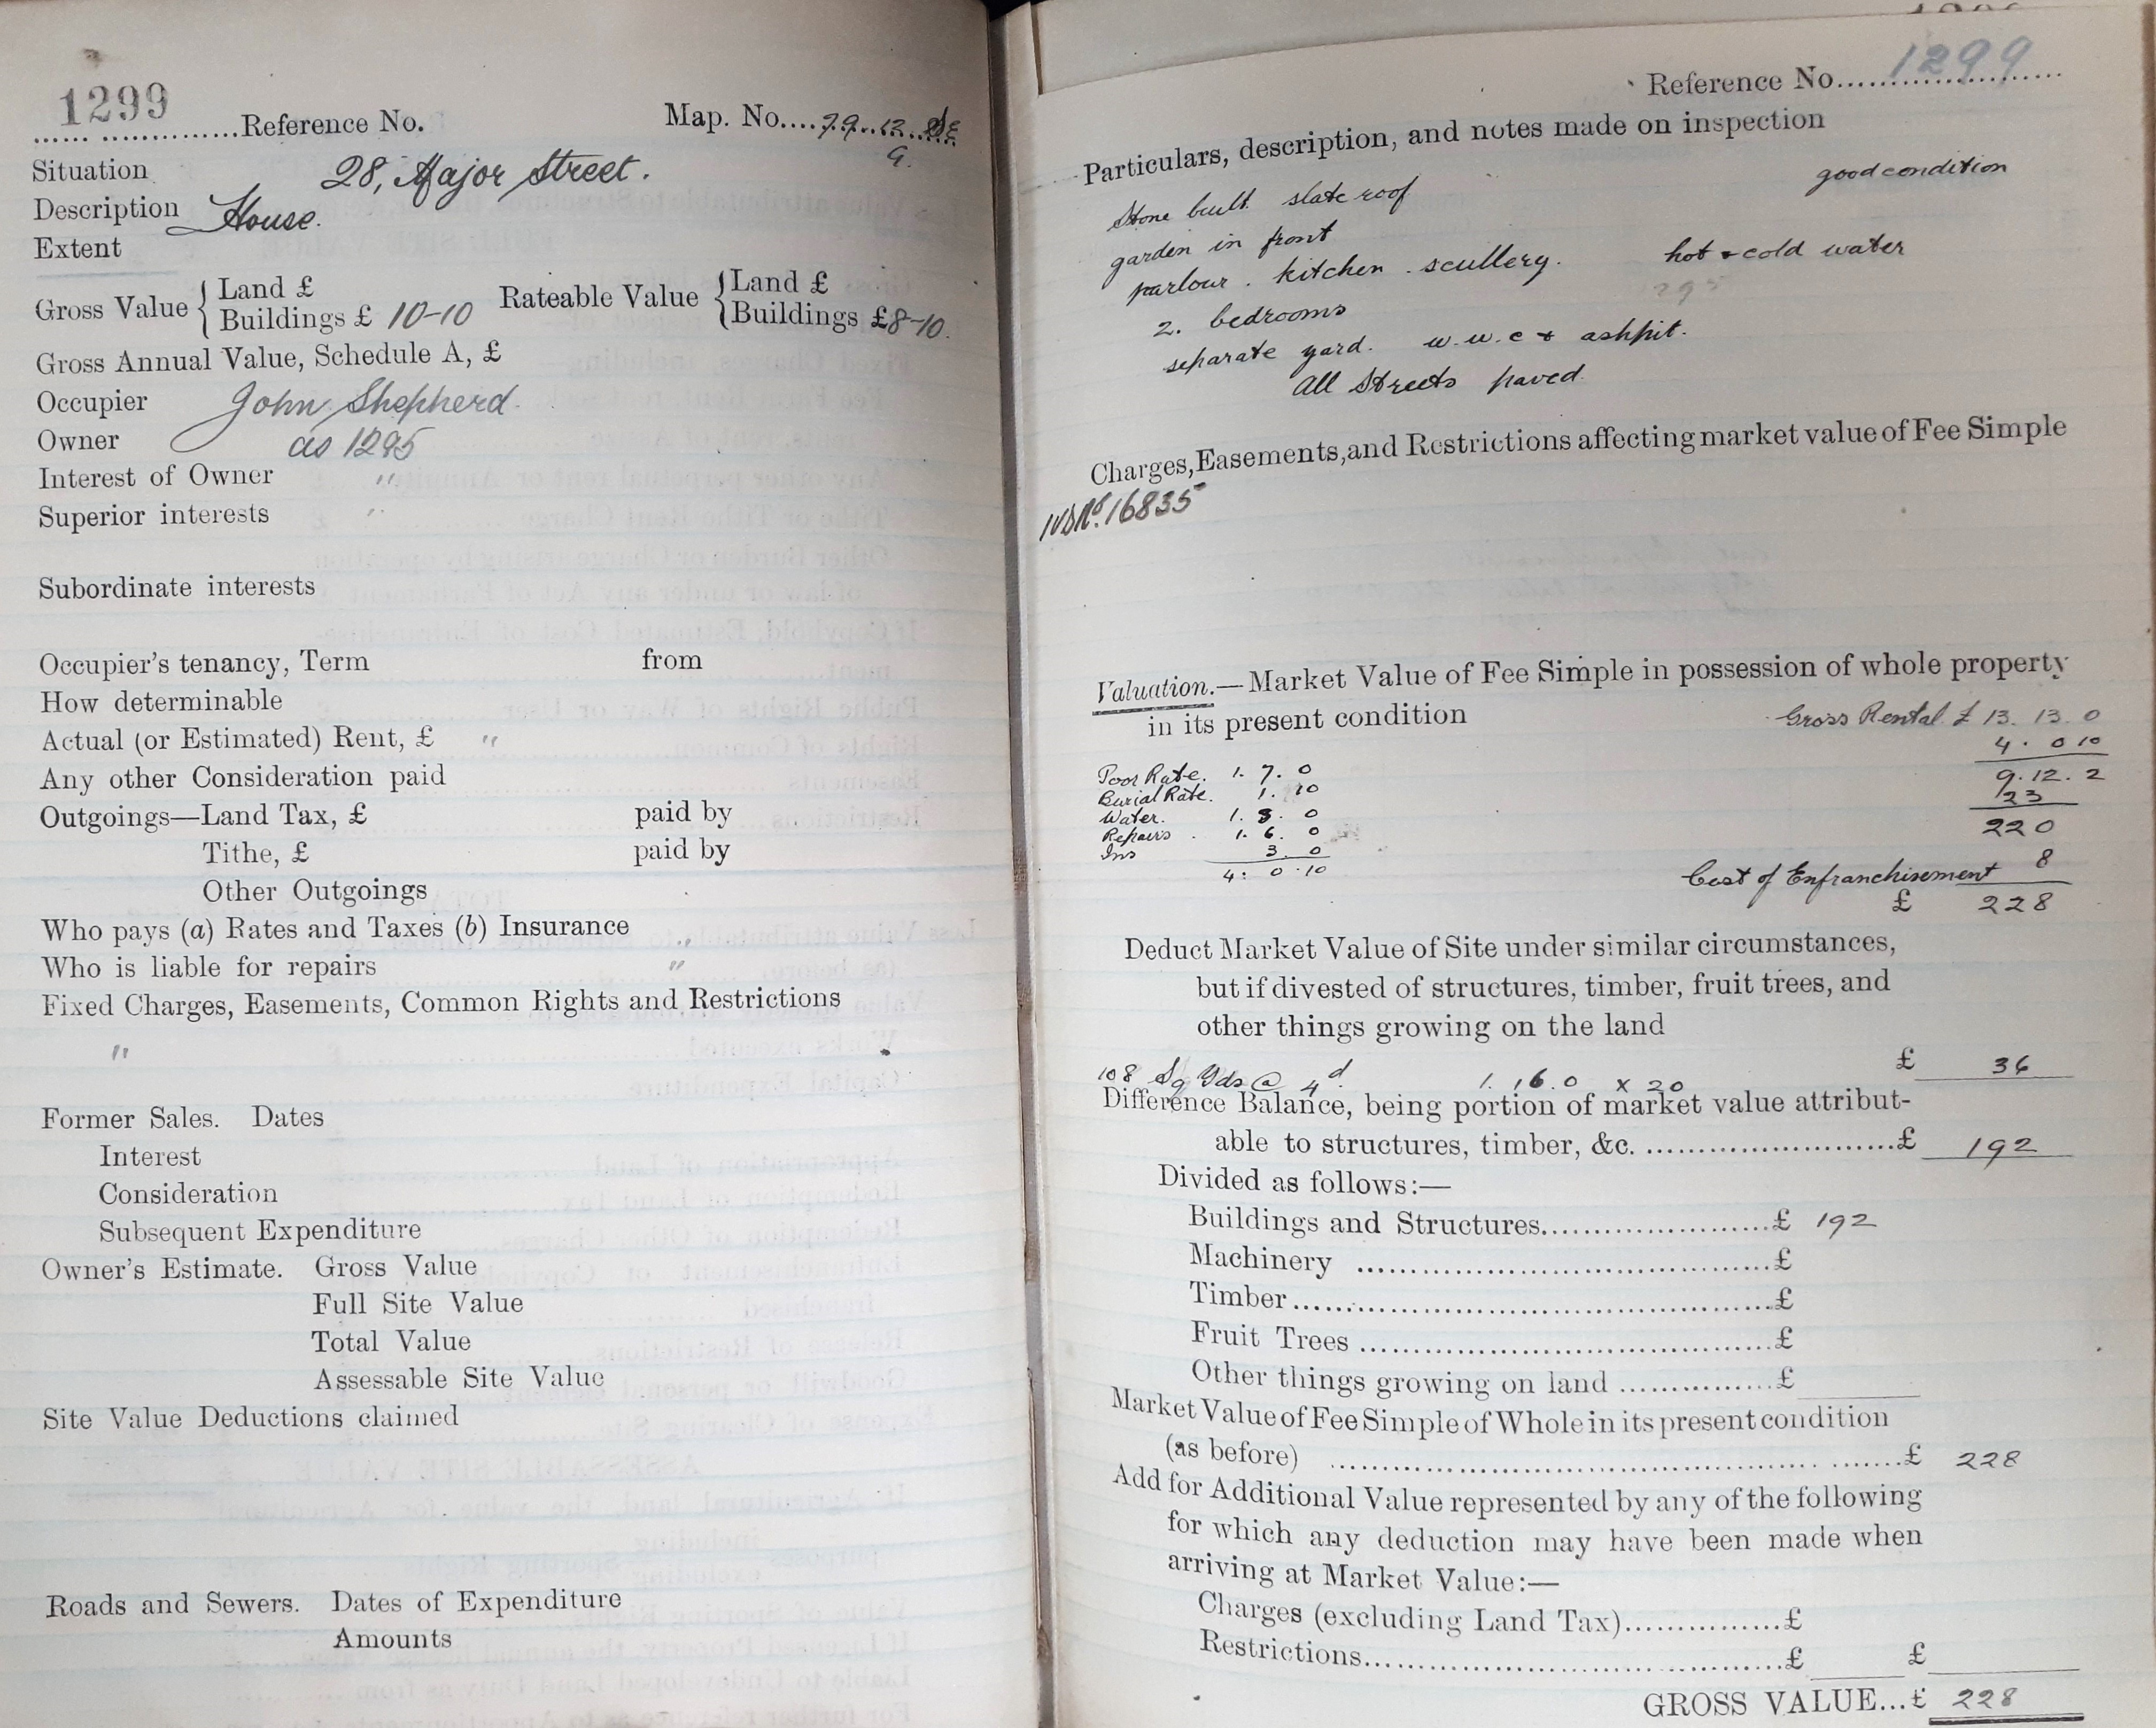 1299
Reference No. Map. No. 79. 12. SE
9.
Situation 28, Major Street.
Description House.
Extent
Gross Value { Land £
Buildings £ 10-10 Rateable Value { Land £
Buildings £8-10.
Gross Annual Value, Schedule A, £
Occupier John Shepherd.
Owner as 1295
Interest of Owner "
Superior interests "
Subordinate interests
Occupier's tenancy, Term from
How determinable
Actual (or Estimated) Rent, £ "
Any other Consideration paid
Outgoings—Land Tax, £ paid by
Tithe, £ paid by
Other Outgoings
Who pays (a) Rates and Taxes (b) Insurance "
Who is liable for repairs "
Fixed Charges, Easements, Common Rights and Restrictions
"
Former Sales. Dates
Interest
Consideration
Subsequent Expenditure
Owner's Estimate. Gross Value
Full Site Value
Total Value
Assessable Site Value
Site Value Deductions claimed
Roads and Sewers. Dates of Expenditure
Amounts
Reference No. 1299
Particulars, description, and notes made on inspection
good condition
Stone built slate roof
garden in front
parlour . kitchen . scullery. hot & cold water
2. bedrooms
separate yard. w.w.c & ashpit.
All Streets paved.
Charges, Easements, and Restrictions affecting market value of Fee Simple
IVD No. 16835
Valuation.—Market Value of Fee Simple in possession of whole property
in its present condition
Gross Rental £ 13. 13. 0
4. 0 10
Poor Rate. 1. 7. 0 9. 12. 2
Burial Rate. 1. 10 23
Water. 1. 3. 0
Repairs 1. 6. 0 220
Ins 3. 0
4: 0.10
Cost of Enfranchisement 8
£ 228
Deduct Market Value of Site under similar circumstances,
but if divested of structures, timber, fruit trees, and
other things growing on the land
108 Sq Yds @ 4d. 1. 16. 0 x 20 £ 36
Difference Balance, being portion of market value attribut-
able to structures, timber, &c. £ 192
Divided as follows:—
Buildings and Structures £ 192
Machinery £
Timber £
Fruit Trees £
Other things growing on land £
Market Value of Fee Simple of Whole in its present condition
(as before) £ 228
Add for Additional Value represented by any of the following
for which any deduction may have been made when
arriving at Market Value:—
Charges (excluding Land Tax) £
Restrictions £ £
GROSS VALUE...£ 228